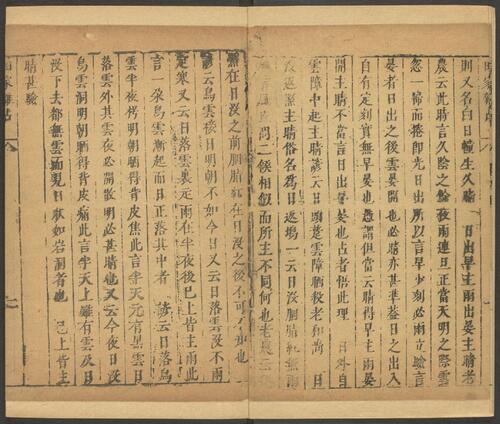 則又名白日幢主久晴　日出早主雨出晏主晴老
農云此時言久陰之餘夜雨連旦正當天明之際雲
忽一掃而捲即光日出所以言早少刻必雨立驗言
晏者日出之後雲晏開也必晴亦甚準蓋日之出入
自有定刻實無早晏也愚謂但當云晴得早主雨晏
開主晴不當言日出早晏也占者悟此理　日外自
雲障中起主晴諺云日頭楚雲障晒殺老和尚　日
沒返照主晴俗名為日返塢一云日沒胭脂紅無雨
問二候相似而所主不同何也老農云
照在日沒之前胭脂紅在日沒之後不可不知也
諺云烏雲接日明朝不如今日又云日落雲沒不雨
定寒又云日落雲裏走雨在半夜後已上皆主雨此
言一朶烏雲漸起而日正落其中者　諺云日落烏
雲半夜枵明朝晒得背皮焦此言半天元有黑雲日
落雲外其雲夜必開散明必甚晴也又云今夜日沒
烏雲洞明朝晒得背皮痛此言半天上雖有雲及日
沒下去都無雲而見日狀如岩洞者也　已上皆主
晴甚驗